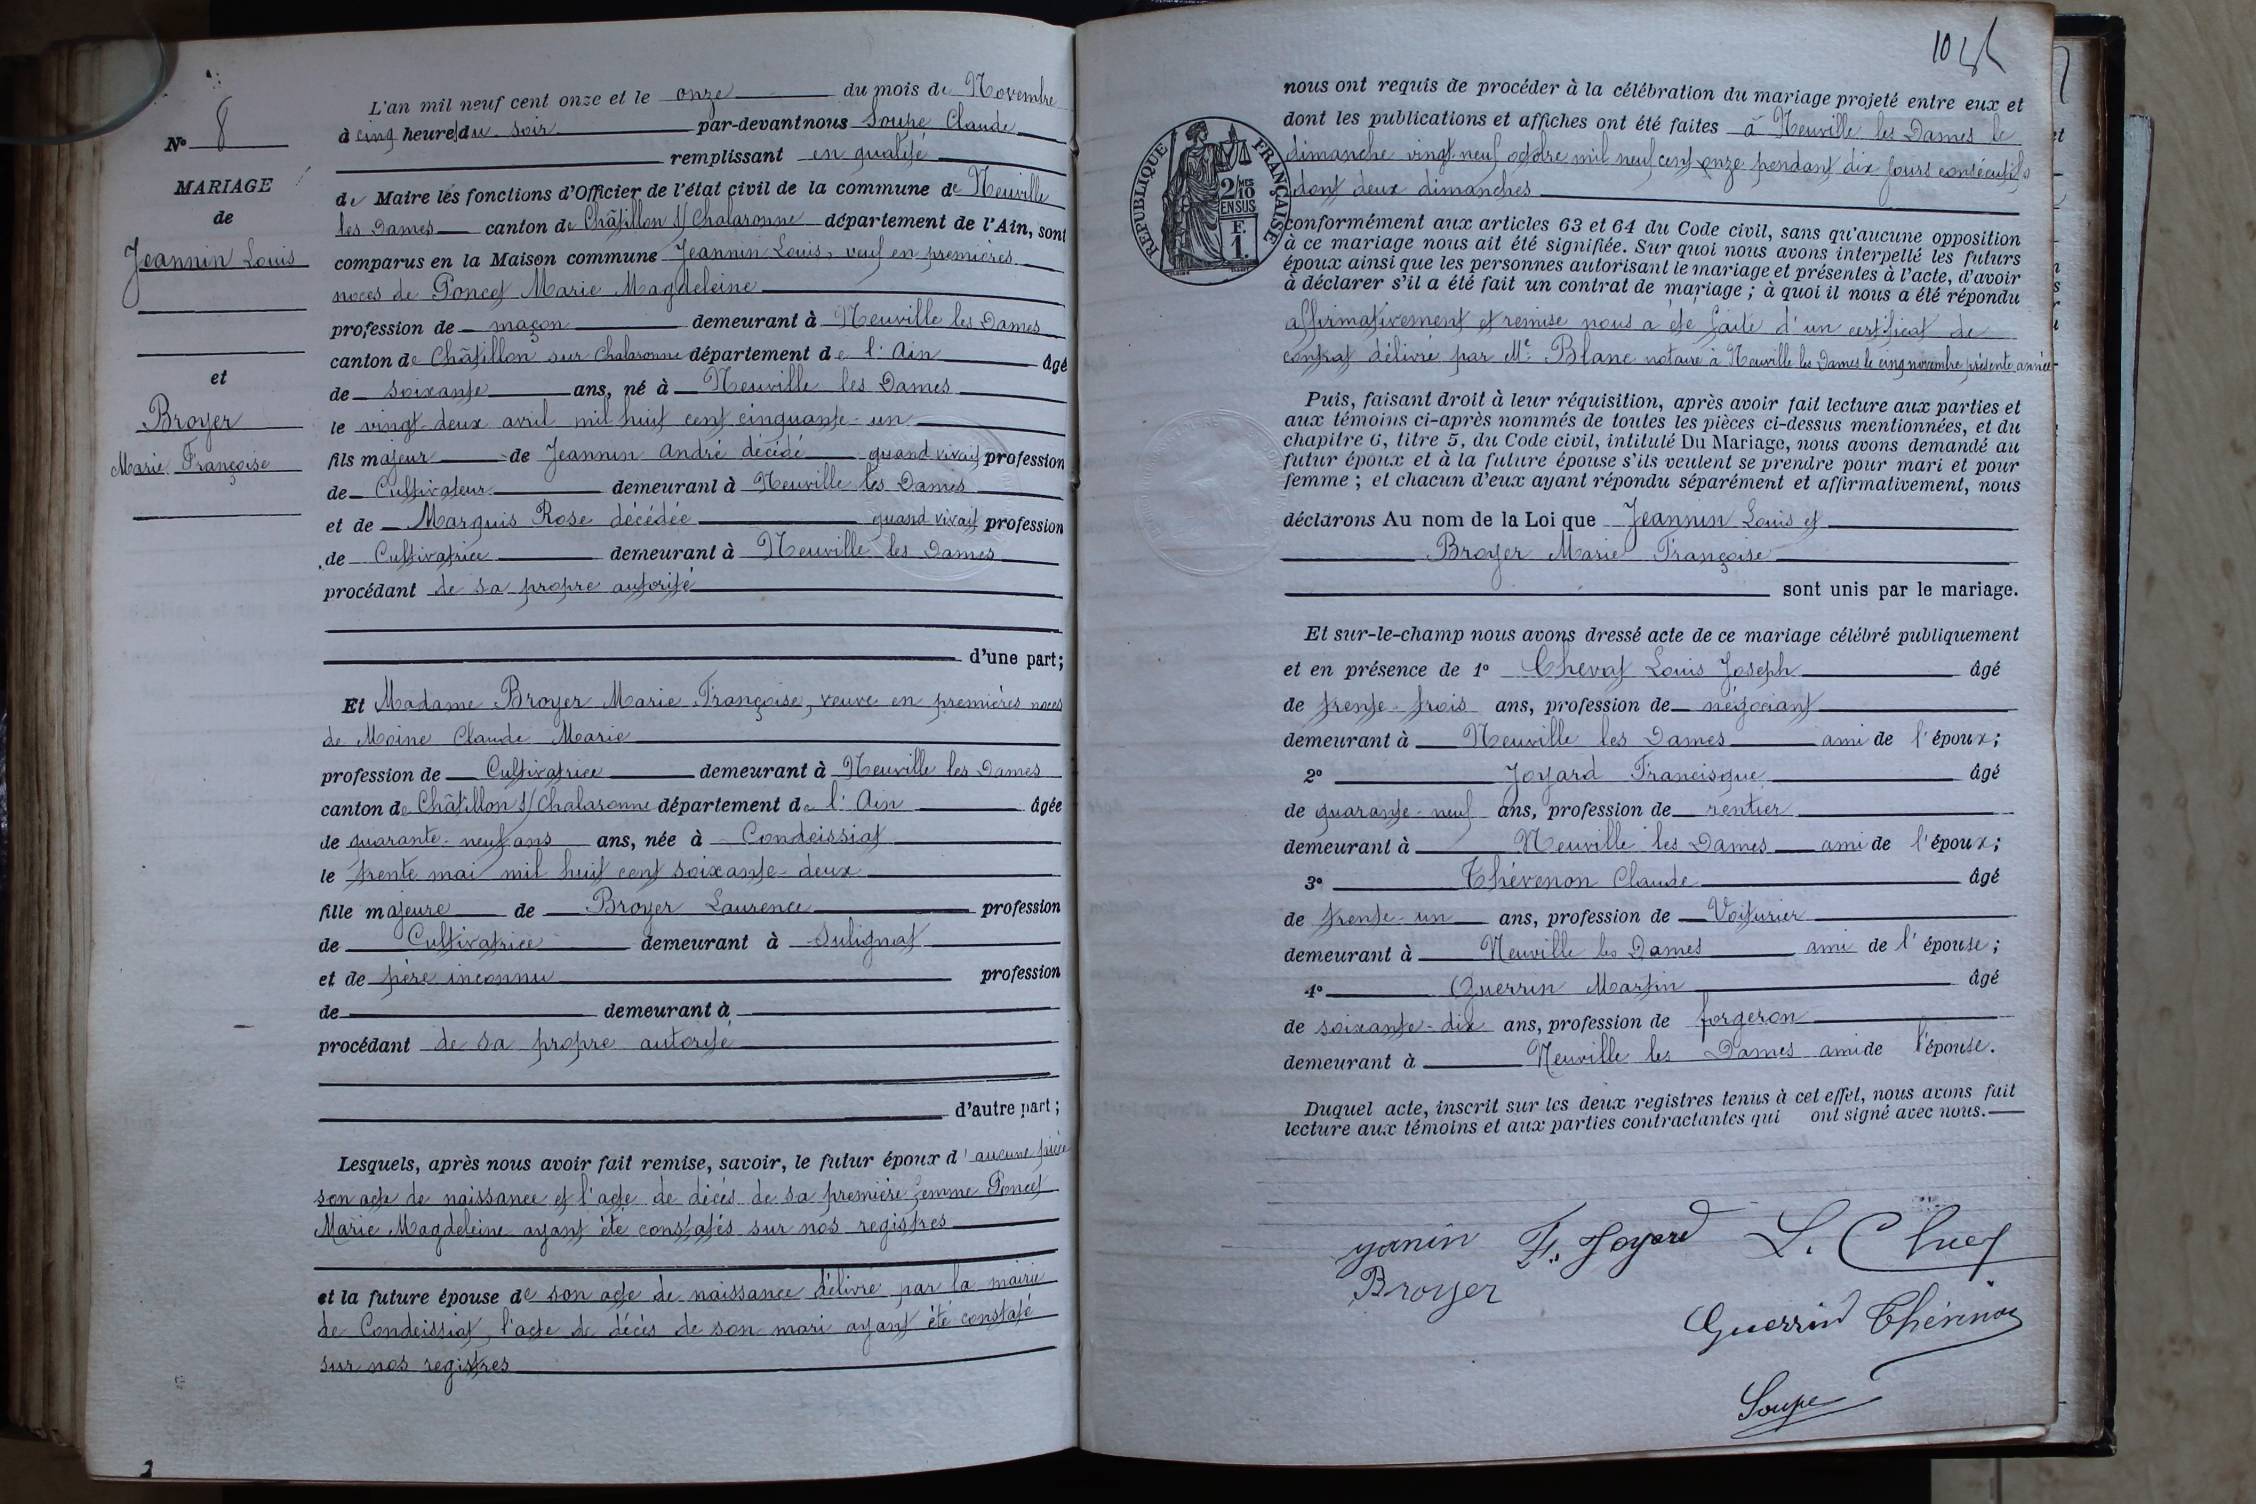 N° 8
MARIAGE
de
Jeannin Louis
et
Broyer
Marie Françoise
L'an mil neuf cent onze et le onze du mois de Novembre
à cinq heures du soir par-devant nous Soupe Claude
remplissant en qualité
de Maire les fonctions d'Officier de l'état civil de la commune de Neuville
les Dames canton de Châtillon s/ Chalaronne département de l'Ain, sont
comparus en la Maison commune Jeannin Louis, veuf en premières
noces de Poncet Marie Magdeleine
profession de maçon demeurant à Neuville les Dames
canton de Châtillon sur Chalaronne département de l'Ain âgé
de soixante ans, né à Neuville les Dames
le vingt-deux avril mil huit cent cinquante-un
fils majeur de Jeannin André décédé quand vivait profession
de Cultivateur demeurant à Neuville les Dames
et de Marquis Rose décédée quand vivait profession
de Cultivatrice demeurant à Neuville les Dames
procédant de sa propre autorité
d'une part;
Et Madame Broyer Marie Françoise, veuve en premières noces
de Moine Claude Marie
profession de Cultivatrice demeurant à Neuville les Dames
canton de Châtillon s/ Chalaronne département de l'Ain âgée
de quarante-neuf ans ans, née à Condeissiat
le trente mai mil huit cent soixante-deux
fille majeure de Broyer Laurence profession
de Cultivatrice demeurant à Sulignat
et de père inconnu profession
de demeurant à
procédant de sa propre autorité
d'autre part;
Lesquels, après nous avoir fait remise, savoir, le futur époux d'aucune pièce
son acte de naissance et l'acte de décès de sa première femme Poncet
Marie Magdeleine ayant été constatés sur nos registres
et la future épouse de son acte de naissance délivré par la mairie
de Condeissiat, l'acte de décès de son mari ayant été constaté
sur nos registres
nous ont requis de procéder à la célébration du mariage projeté entre eux et
dont les publications et affiches ont été faites à Neuville les Dames le
dimanche vingt neuf octobre mil neuf cent onze pendant dix jours consécutifs
dont deux dimanches
RÉPUBLIQUE FRANÇAISE
2/10 MES
EN SUS
F.
1.
conformément aux articles 63 et 64 du Code civil, sans qu'aucune opposition
à ce mariage nous ait été signifiée. Sur quoi nous avons interpellé les futurs
époux ainsi que les personnes autorisant le mariage et présentes à l'acte, d'avoir
à déclarer s'il a été fait un contrat de mariage; à quoi il nous a été répondu
affirmativement et remise nous a été faite d'un certificat de
contrat délivré par Me Blanc notaire à Neuville les Dames le cinq novembre présente année
Puis, faisant droit à leur réquisition, après avoir fait lecture aux parties et
aux témoins ci-après nommés de toutes les pièces ci-dessus mentionnées, et du
chapitre 6, titre 5, du Code civil, intitulé Du Mariage, nous avons demandé au
futur époux et à la future épouse s'ils veulent se prendre pour mari et pour
femme; et chacun d'eux ayant répondu séparément et affirmativement, nous
déclarons Au nom de la Loi que Jeannin Louis et
Broyer Marie Françoise
sont unis par le mariage.
Et sur-le-champ nous avons dressé acte de ce mariage célébré publiquement
et en présence de 1° Chevat Louis Joseph âgé
de trente-trois ans, profession de négociant
demeurant à Neuville les Dames ami de l'époux;
2° Joyard Francisque âgé
de quarante-neuf ans, profession de rentier
demeurant à Neuville les Dames ami de l'époux;
3° Thévenon Claude âgé
de trente-un ans, profession de Voiturier
demeurant à Neuville les Dames ami de l'épouse;
4° Guerrin Martin âgé
de soixante-dix ans, profession de forgeron
demeurant à Neuville les Dames ami de l'épouse.
Duquel acte, inscrit sur les deux registres tenus à cet effet, nous avons fait
lecture aux témoins et aux parties contractantes qui ont signé avec nous.
yanin F. Joyard
Broyer
Guerrin Thévenon
Soupe